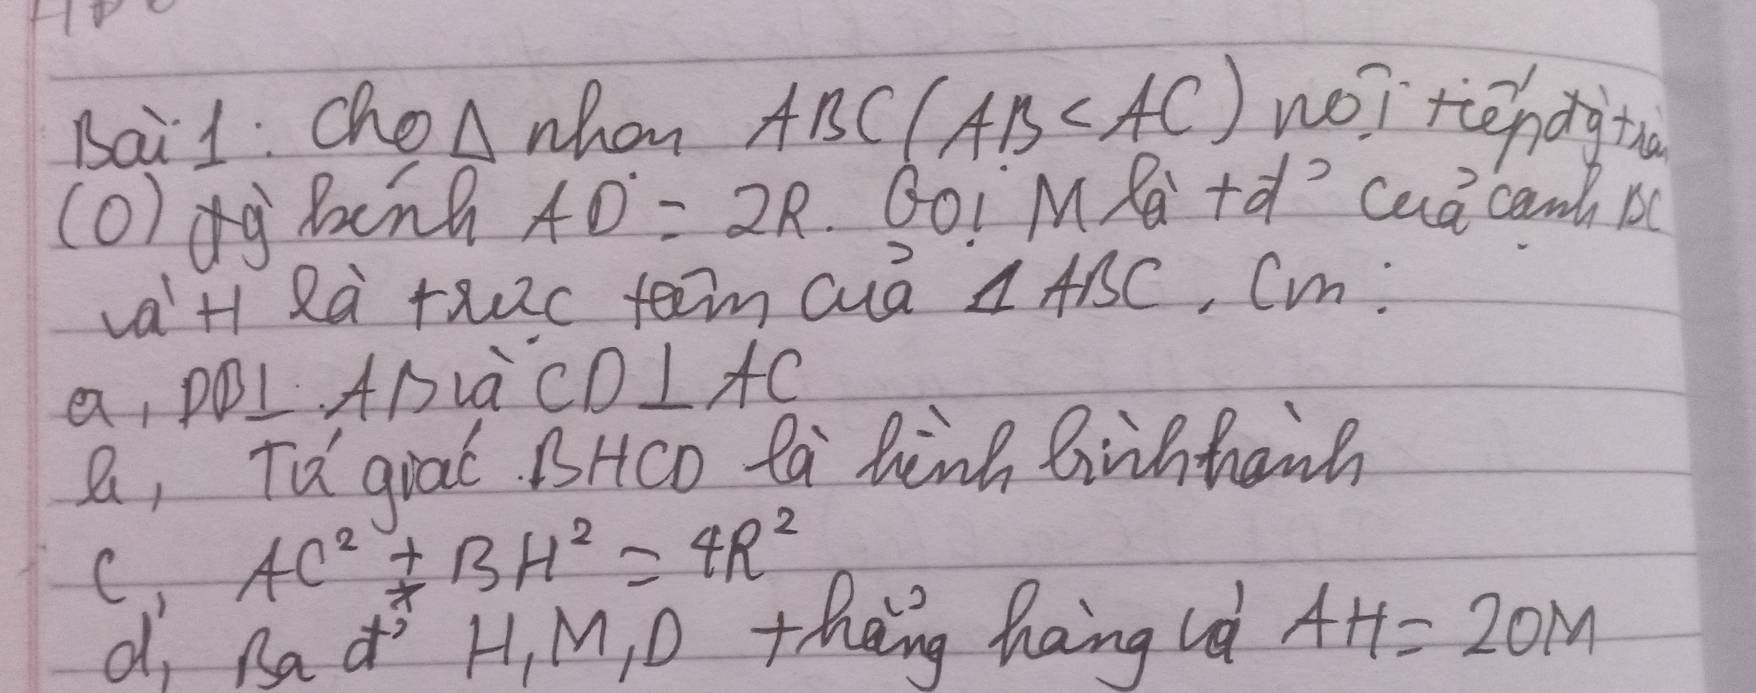 Bài 1: Cho Δ nhọn ABC (AB < AC) nội tiếp đg tròn
(O) đg kính AD = 2R. Gọi M là tđ' của cạnh BC
và H là trực tâm của Δ ABC. Cm:
a, DB ⊥ AB và CD ⊥ AC
b, Tứ giác BHCD là hình bình hành
c, AC² + BH² = 4R²
d, Ba đ' H, M, D thẳng hàng và AH = 2OM